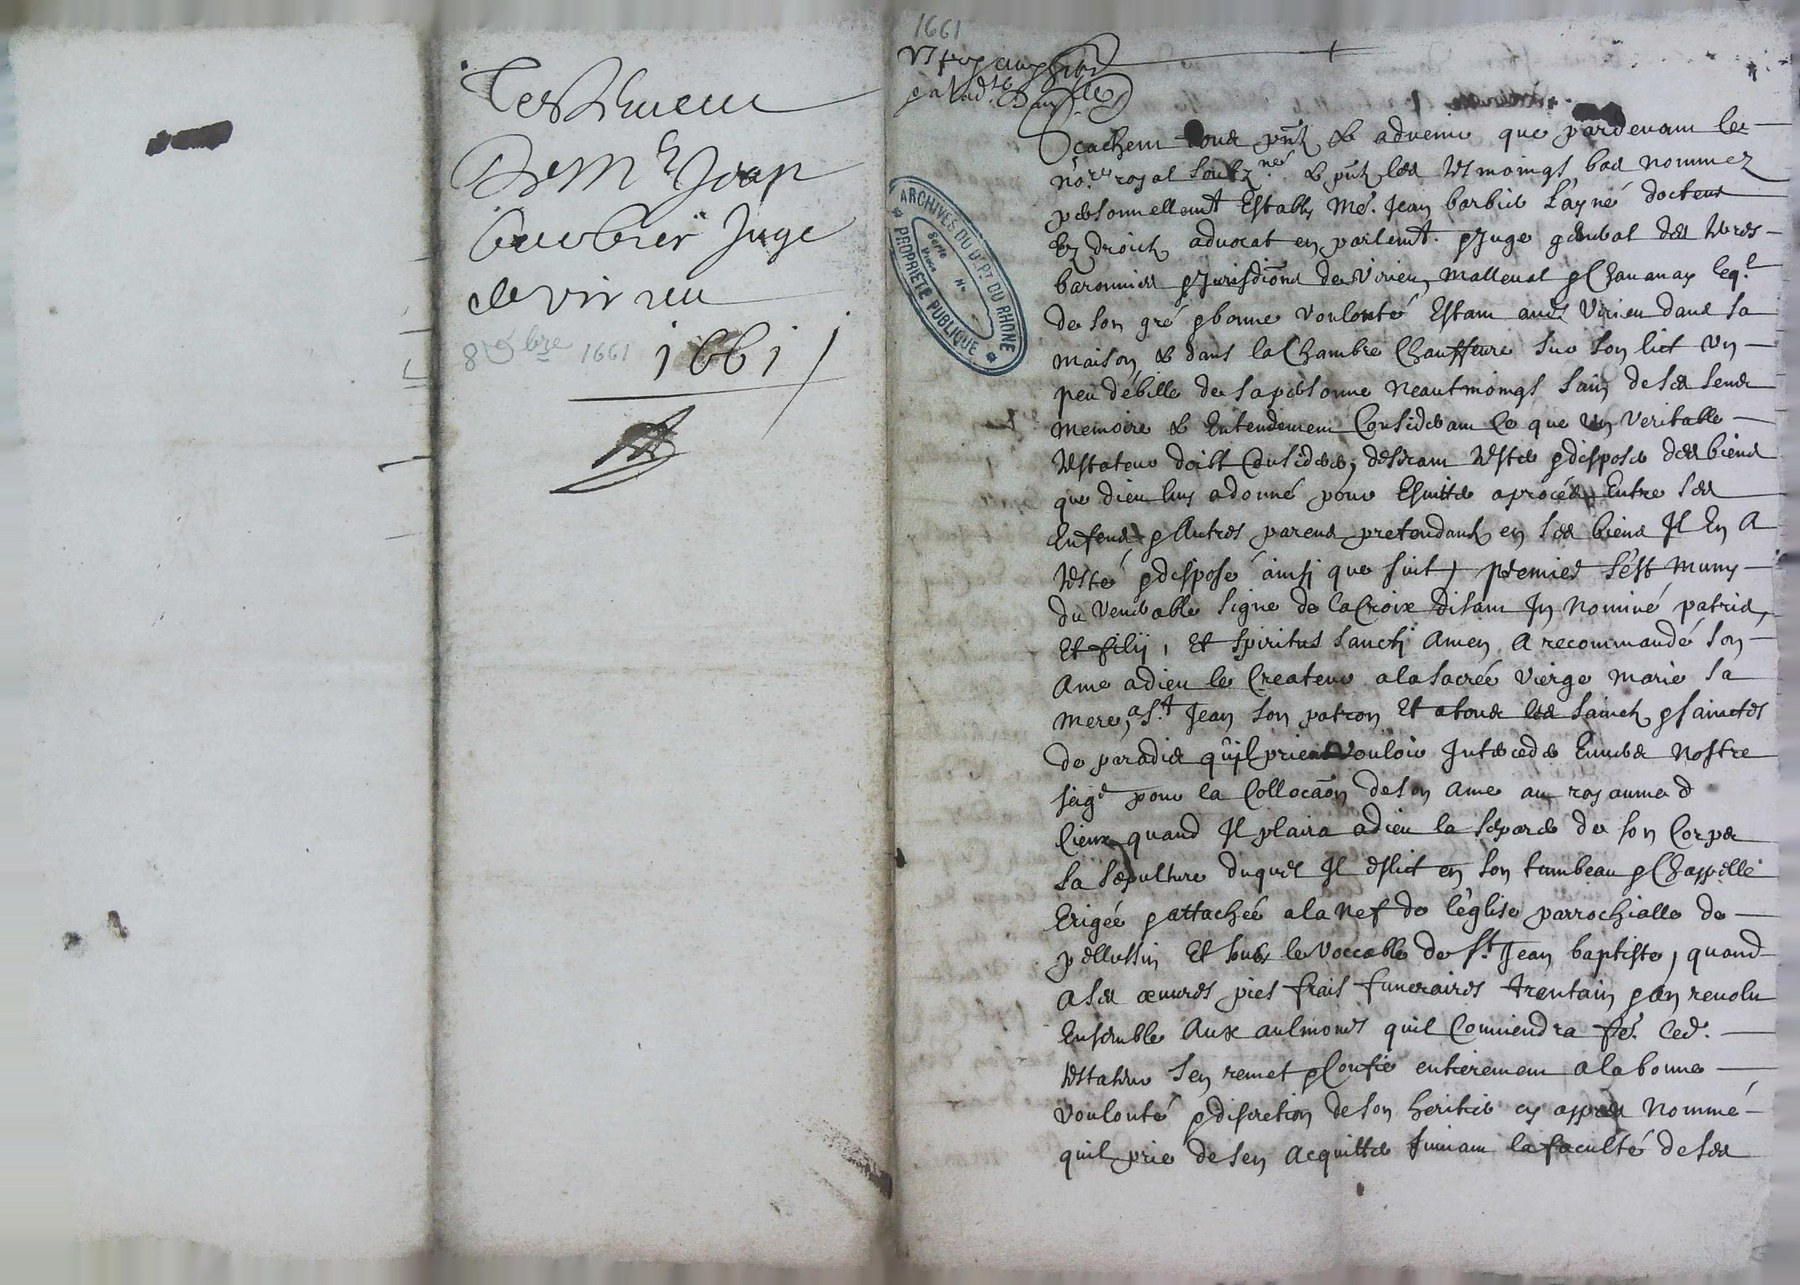 Testament
De Mr Jean
barbier Juge
de virieu
8 8bre 1661
1661
1661
ARCHIVES DU DPT DU RHONE
PROPRIÉTÉ PUBLIQUE
Serie
No
Scachent tous pntz & advenir que pardevant le
nore royal soubzné & pntz les tesmoings bas nommez
personnellemt Estably Me. Jean barbier L'ayné docteur
Ez droictz advocat en parlemt. & Juge general des terres
baronnies & Jurisdions de Virieu, Malleval & Chavanay leql
de son gré & bonne voulonté Estant aud Virieu dans sa
maison & dans la Chambre Chauffure sur son lict un
peu débille de sa personne neautmoings sain de ses sens
memoire & Entendement Considerant Ce que un veritable
testateur doibt Considerer, desirant tester & disposer des biens
que dieu luy a donné pour Esvitter a procés Entre ses
Enfens & Autres parens pretendantz en ses biens Il En A
testé & disposé ainsi que suit, premier s'est muny
du venerable signe de la Croix disant In Nominé patris,
Et filij, Et spiritus sancti Amen, A recommandé son
Ame a dieu le Createur a la sacrée vierge marie sa
mere, a St Jean son patron Et a tous les sainctz & sainctes
de paradis qu'il prie vouloir Interceder Envers nostre
seigr pour la Collocaon de son Ame au royaume d
Cieux quand Il plaira a dieu la separer de son Corps
La sepulture duquel Il eslict en son tumbeau & Chappelle
Erigée & attachée a la nef de l'église parrochialle de
pellussin Et soubz le voccable de St Jean baptiste, quand
A ses œuvres pies frais funeraires trentain & an revolu
Ensemble Aux aulmones quil Conviendra fe. Led.
testateur s'en remet & Confie entierement a la bonne
voulonté & discretion de son heritier cy apprés Nommé
quil prie de sen Acquitter suivant la faculté de ses